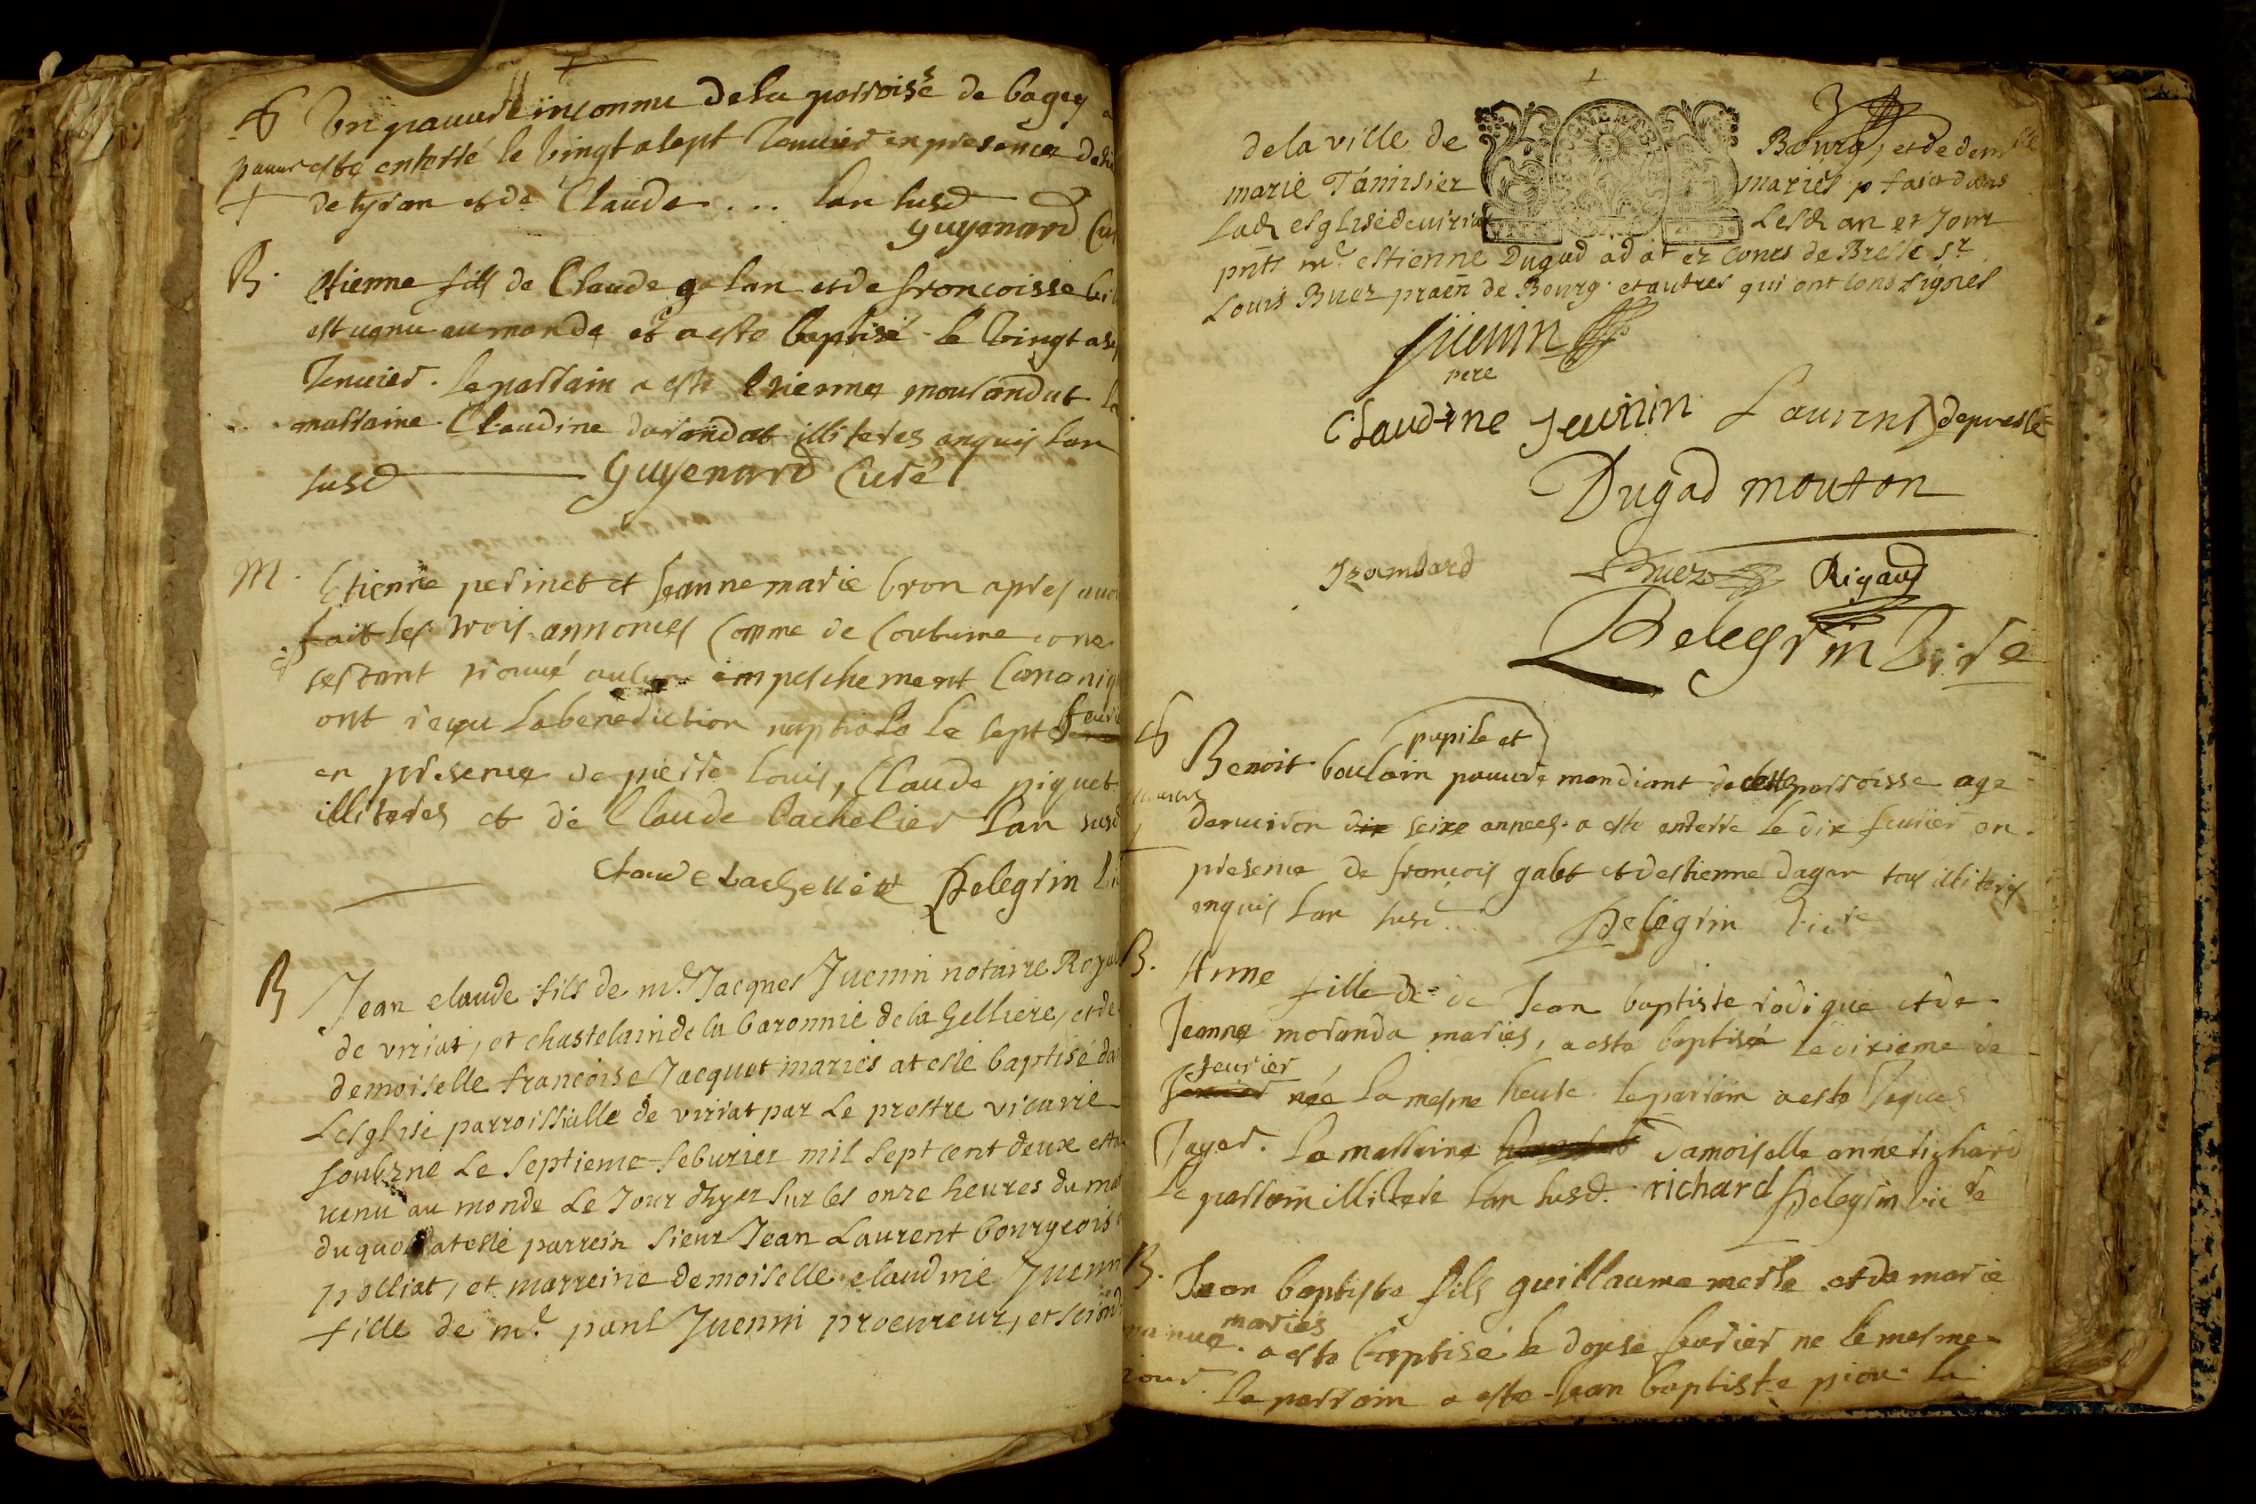 Un pauure inconnu de la parroisse de bagey
pauure esté enterré le vingt a sept Januier en presence
de tyran et de Claude ... lan susd
Guyenard Cu
B. Etienne fils de Claude gelan et de francoisse
est uenu au monde et a esté baptisé le vingt a sep
Januier. le parrain a esté Etienne mourandat la
marraine Claudine durandat illiteres enquis lan
susd Guyenard Curé
M. Etienne perinet et Jeanne marie bron apres auoi
fait les trois annonces Comme de Coutume
sestant trouué aulcun empeschement Canoniq
ont reçu la benediction nuptiale le sept feuri
en presence de pierre louis, Claude piquet
illiteres et de Claude bachelier lan susd
Claude bachelier Pelegrin
B Jean claude fils de mr. Jacques Juenin notaire Royal
de viriat, et chastelain de la baronnie de la Gelliere, et de
demoiselle francoise Jacquet mariés at esté baptisé da
Lesglise parroissialle de viriat par Le prestre vicaire
soubzné Le septieme feburier mil sept cent deux esta
uenu au monde Le Jour dhyer sur les onze heures du ma
duquel at esté parrein sieur Jean Laurent bourgeois
polliat, et marreine demoiselle claudine Juenin
fille de mr. paul Juenin procureur, et scind
de la ville de Bourg, et de demlle
marie Tamisier mariés p fait dans
Lad esglise de viriat Lesd an et Jour
pnts mr. estienne Dugad adat ez cours de Bresse sr.
Louis Buez praen de Bourg et autres qui ont soussignes
Juenin
pere
Claudine Jeuinin Laurent depresle
Dugad mouton
Buez Rigaud
Pelegrin Vi re
pupile et
Benoit boulain pauure mendiant de cette parroisse age
denuiron dix seize annees a esté enterre le dix feurier en
presence de francois galet et destienne dagan tous illiteres
enquis lan susd. Pelegrin Vic re
B. Anne fille de de Jean baptiste rodique et de
Jeanne moranda mariés, a esté baptisée le dixieme de
feurier
Januier née la mesme heure. le parrain a esté
Jayer. La marraine damoiselle anne richard
Le parrain illitere lan susd. richard Pelegrin vic re
B. Jean baptiste fils guillaume merle et de marie
mariés
a esté baptisé le douse feurier ne le mesme
iour. le parrain a esté Jean baptiste piou la